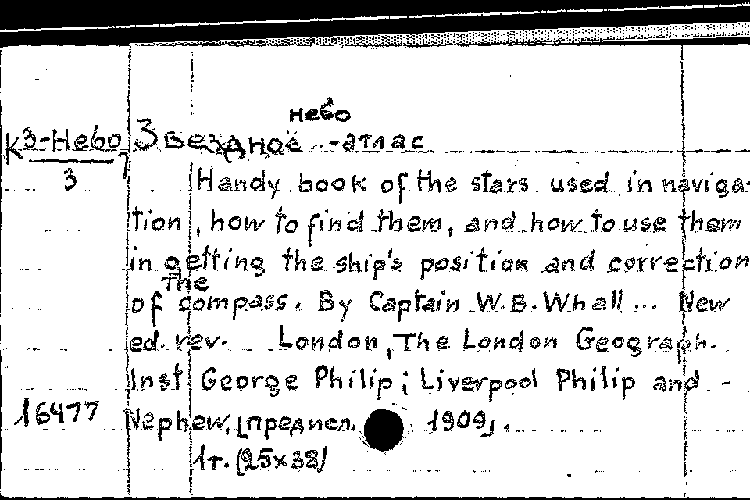 небо
К3-Небо Звездное -атлас
3 7
Handy book of the stars used in naviga-
tion, how to find them, and how to use them
in getting the ship's position and correction
the
of compass. By Captain W.B.Whall... New
ed. rev. London, The London Geograph.
Inst George Philip; Liverpool Philip and -
16477 Nephew, [предисл. 1909].
1т. (25x38)